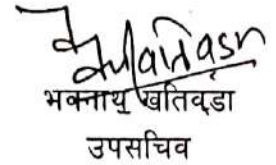 भक्नाथ खतिवडा
उपसचिव